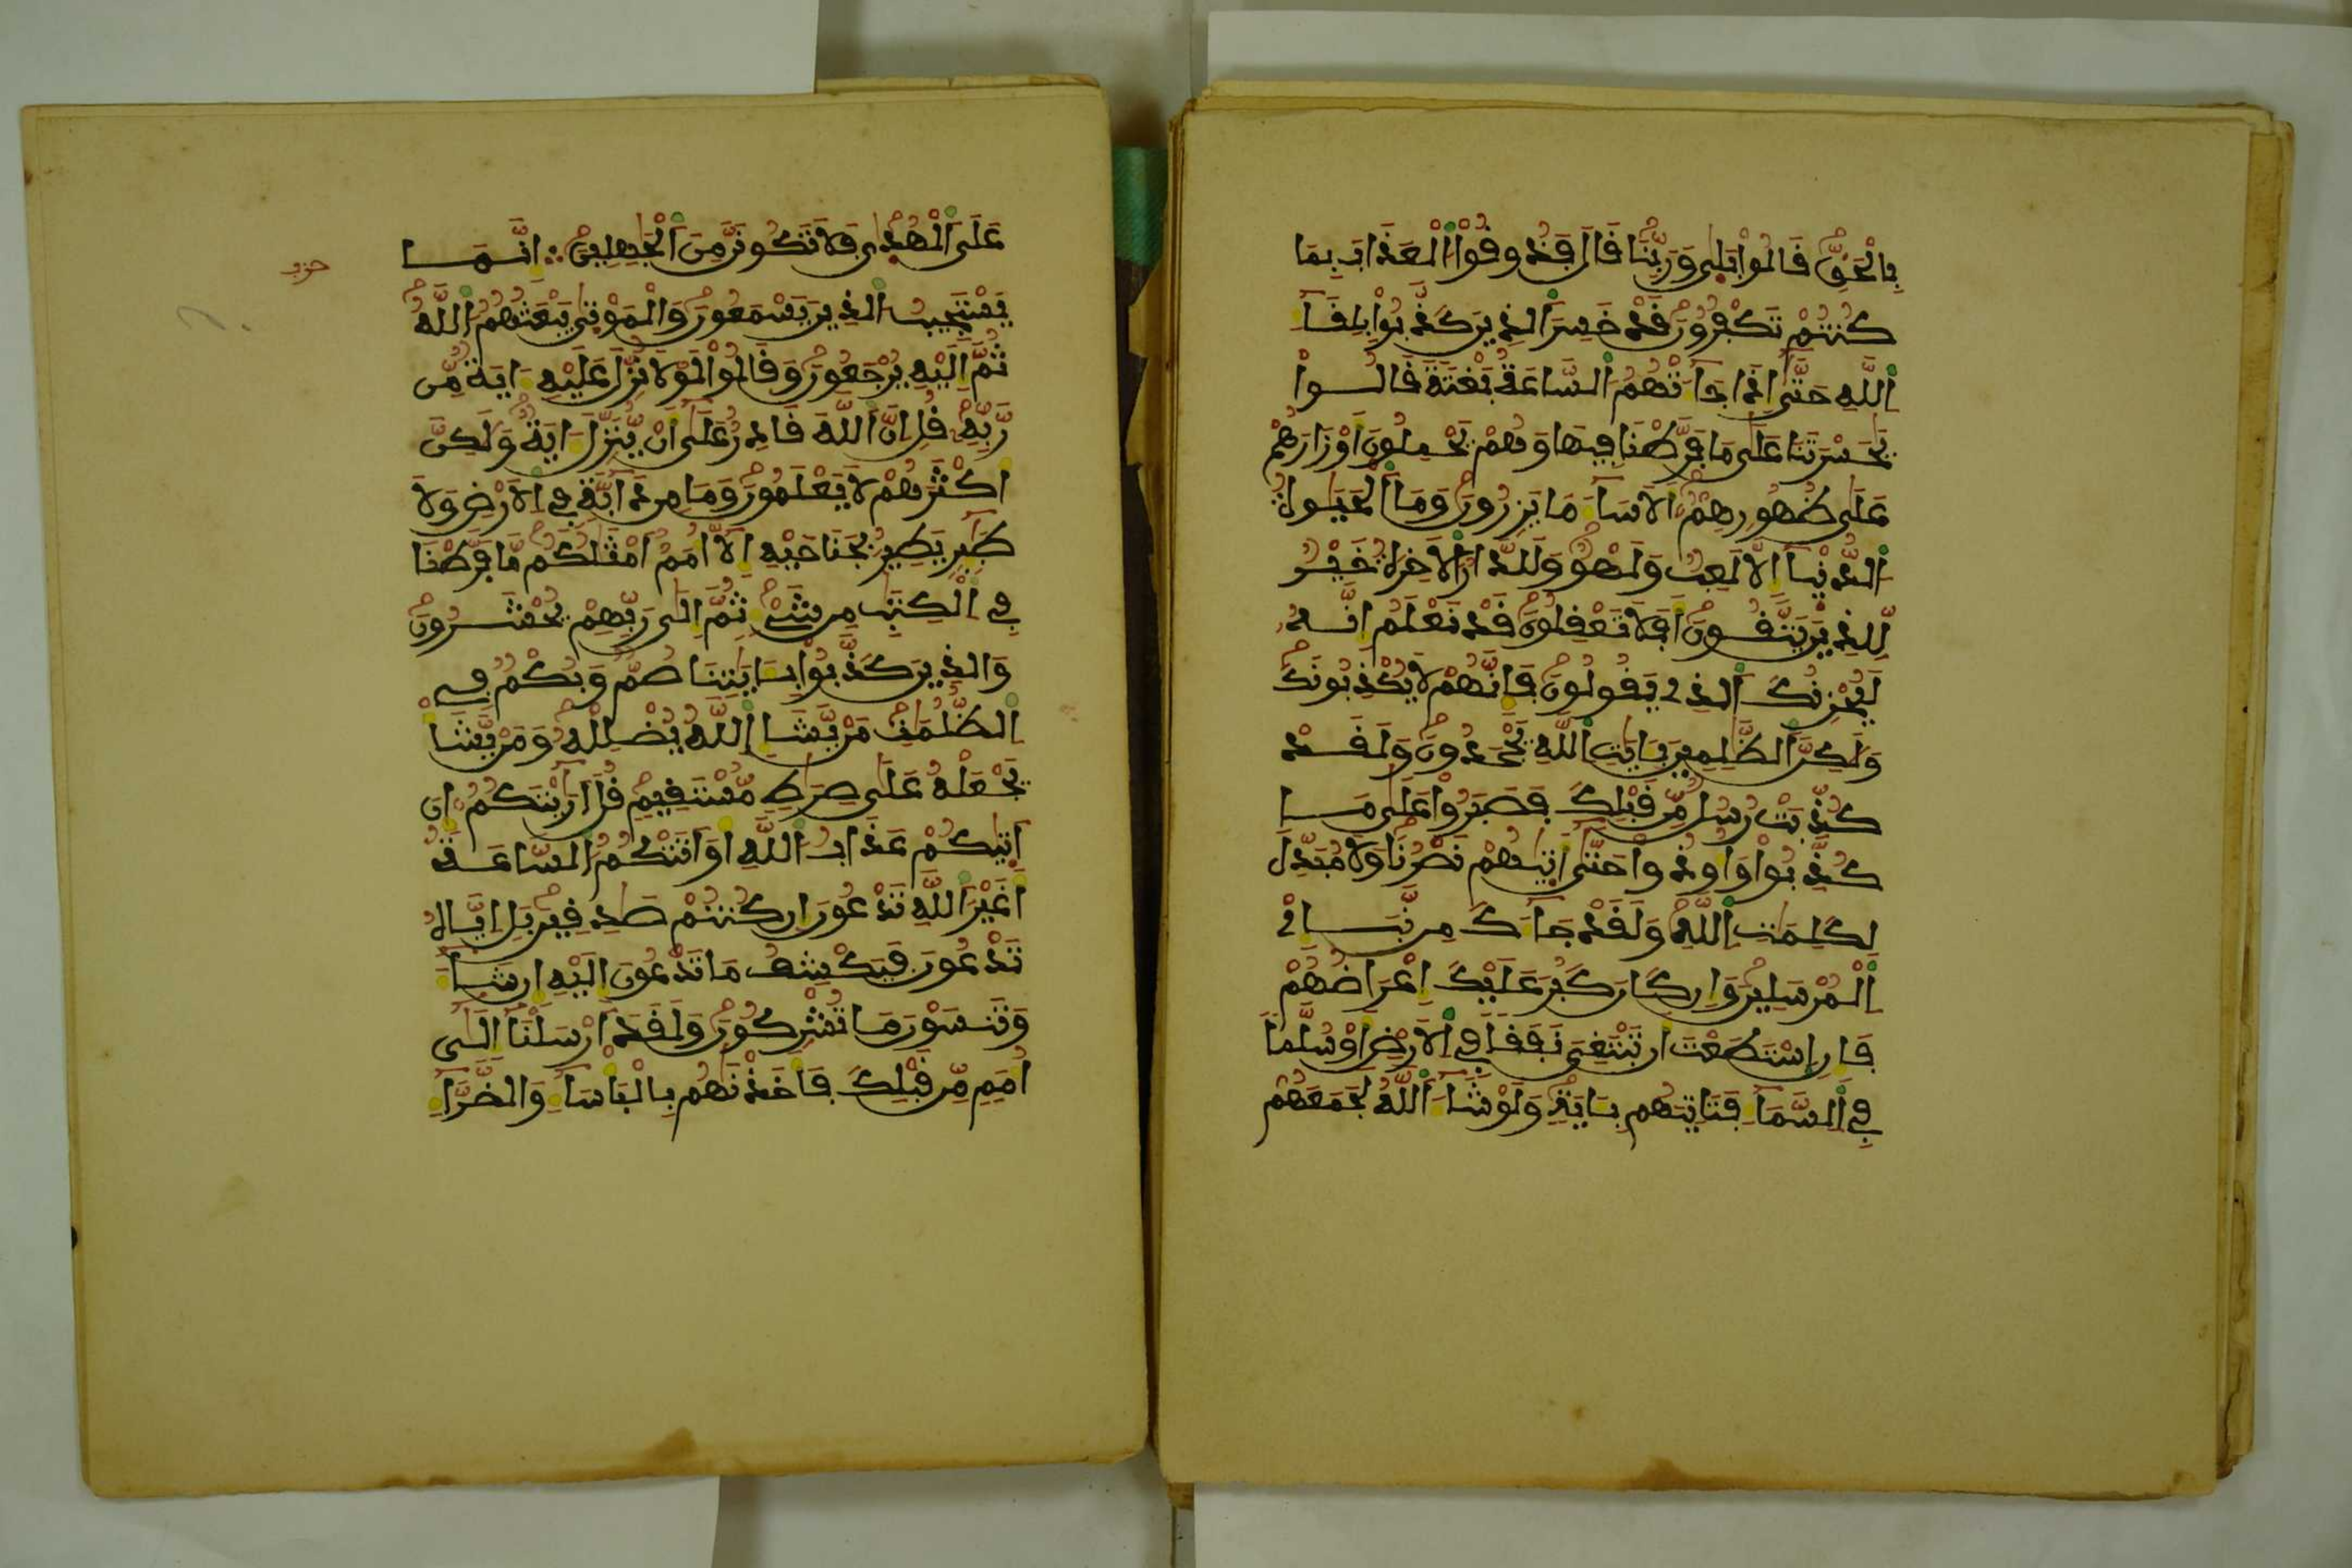 بِالْحَقِّ قَالُواْ بَلَىٰ وَرَبِّنَا قَالَ فَذُوقُواْ الْعَذَابَ بِمَا
كُنتُمْ تَكْفُرُونَ قَدْ خَسِرَ الذِينَ كَذَّبُواْ بِلِقَآءِ
اِللَّهِ حَتَّىٰ إِذَا جَآءَتْهُمُ السَّاعَةُ بَغْتَةً قَالُواْ
يَٰحَسْرَتَنَا عَلَىٰ مَا فَرَّطْنَا فِيهَا وَهُمْ يَحْمِلُونَ أَوْزَارَهُمْ
عَلَىٰ ظُهُورِهِمُۥ أَلَا سَآءَ مَا يَزِرُونَ وَمَا اَلْحَيَوٰةُ
اُلدُّنْيَآ إِلَّا لَعِبٌ وَلَهْوٌ وَلَلدَّارُ اُلَاخِرَةُ خَيْرٌ
لِّلذِينَ يَتَّقُونَ أَفَلَا تَعْقِلُونَ قَدْ نَعْلَمُ إِنَّهُۥ
لَيُحْزِنُكَ اَلذِے يَقُولُونَ فَإِنَّهُمْ لَا يُكْذِبُونَكَ
وَلَٰكِنَّ اَلظَّٰلِمِينَ بِـَٔايَٰتِ اِللَّهِ يَجْحَدُونَ وَلَقَدْ
كُذِّبَتْ رُسُلٌ مِّن قَبْلِكَ فَصَبَرُواْ عَلَىٰ مَا
كُذِّبُواْ وَأُوذُواْ حَتَّىٰ أَتَيٰهُمْ نَصْرُنَا وَلَا مُبَدِّلَ
لِكَلِمَٰتِ اِللَّهِ وَلَقَدْ جَآءَكَ مِن نَّبَإِےْ
اِلْمُرْسَلِينَ وَإِن كَانَ كَبُرَ عَلَيْكَ إِعْرَاضُهُمْ
فَإِنِ اِسْتَطَعْتَ أَن تَبْتَغِىَ نَفَقاً فِے اِلَارْضِ أَوْ سُلَّماً
فِے اِلسَّمَآءِ فَتَاتِيَهُم بِـَٔايَةٍ وَلَوْ شَآءَ اَللَّهُ لَجَمَعَهُمْ
عَلَى اَلْهُدَىٰ فَلَا تَكُونَنَّ مِنَ اَلْجَٰهِلِينَ إِنَّمَا
حزب
يَسْتَجِيبُ اُلذِينَ يَسْمَعُونَ وَالْمَوْتَىٰ يَبْعَثُهُمُ اُللَّهُ
ثُمَّ إِلَيْهِ يُرْجَعُونَ وَقَالُواْ لَوْلَا نُزِّلَ عَلَيْهِ ءَايَةٌ مِّن
رَّبِّهِۦ قُلِ اِنَّ اَللَّهَ قَادِرٌ عَلَىٰ أَنْ يُّنَزِّلَ ءَايَةً وَلَٰكِنَّ
أَكْثَرَهُمْ لَا يَعْلَمُونَ وَمَا مِن دَآبَّةٍ فِے اِلَارْضِ وَلَا
طَٰٓئِرٍ يَطِيرُ بِجَنَاحَيْهِ إِلَّآ أُمَمٌ اَمْثَٰلُكُم مَّا فَرَّطْنَا
فِے اِلْكِتَٰبِ مِن شَےْءٍ ثُمَّ إِلَىٰ رَبِّهِمْ يُحْشَرُونَ
وَالذِينَ كَذَّبُواْ بِـَٔايَٰتِنَا صُمٌّ وَبُكْمٌ فِے
اِلظُّلُمَٰتِ مَنْ يَّشَإِ اِللَّهُ يُضْلِلْهُ وَمَنْ يَّشَأْ
يَجْعَلْهُ عَلَىٰ صِرَٰطٍ مُّسْتَقِيمٍ قُلَ اَرَٰيْتَكُمُۥ إِنَ
اَتَيٰكُمْ عَذَابُ اُللَّهِ أَوَ اَتَتْكُمُ اُلسَّاعَةُ
أَغَيْرَ اَللَّهِ تَدْعُونَ إِن كُنتُمْ صَٰدِقِينَ بَلِ اِيَّاهُ
تَدْعُونَ فَيَكْشِفُ مَا تَدْعُونَ إِلَيْهِ إِن شَآءَ
وَتَنسَوْنَ مَا تُشْرِكُونَ وَلَقَدَ اَرْسَلْنَآ إِلَىٰٓ
أُمَمٍ مِّن قَبْلِكَ فَأَخَذْنَٰهُم بِالْبَأْسَآءِ وَالضَّرَّآءِ